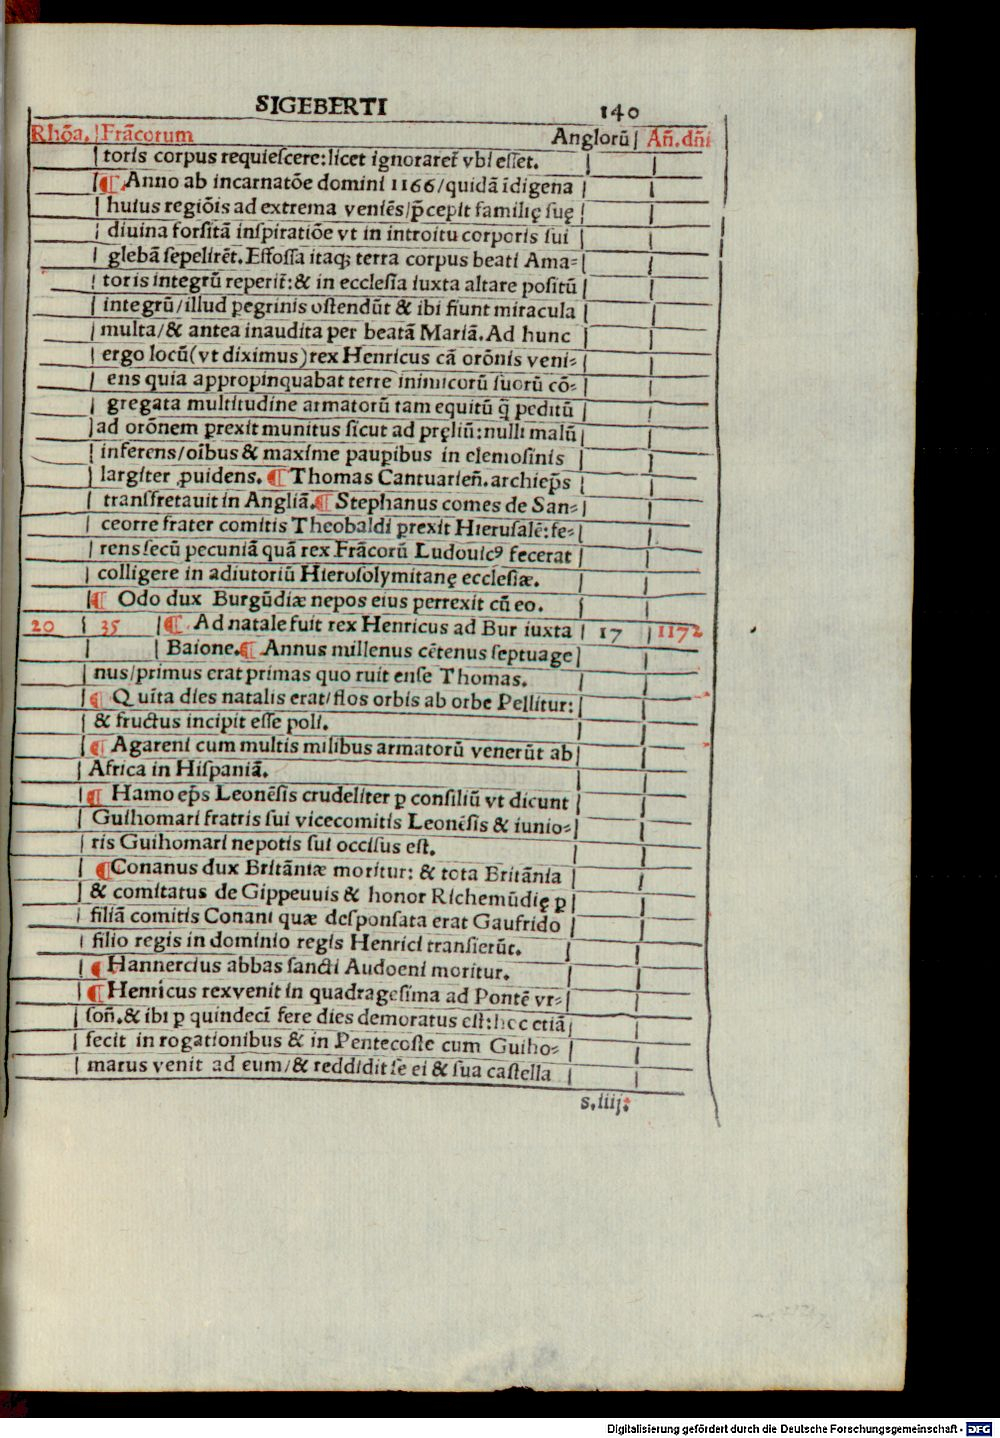 SIGEBERTI 140
Rhõa. Frãcorum Anglorũ Añ. dñi
toris corpus requieſcere: licet ignoraret̃ vbi eſſet.
¶ Anno ab incarnatõe domini 1166/quidã ĩdigena
huius regiõis ad extrema veniẽs/p̃cepit familię ſuę
diuina forſitã inſpiratiõe vt in introitu corporis ſui
glebã ſepelirẽt. Effoſſa itaqꝫ terra corpus beati Ama⸗
toris integrũ reperit̃: & in eccleſĩa iuxta altare poſitũ
integrũ/illud ꝑegrinis oſtendũt & ibi fiunt miracula
multa/& antea inaudita per beatã Mariã. Ad hunc
ergo locũ(vt diximus)rex Henricus cã orõnis veni⸗
ens quia appropinquabat terre inimicorũ ſuorũ cõ⸗
gregata multitudine armatorũ tam equitũ q̃ peditũ
ad orõnem ꝑrexit munitus ſicut ad pręliũ: nulli malũ
inferens/oĩbus & maxime pauꝑibus in elemoſinis
largiter ꝓuidens. ¶ Thomas Cantuarieñ. archiep̃s
tranſfretauit in Angliã. ¶ Stephanus comes de San⸗
ceorre frater comitis Theobaldi ꝑrexit Hieruſalẽ: fe⸗
rens ſecũ pecuniã quã rex Frãcorũ Ludouicꝰ fecerat
colligere in adiutoriũ Hieroſolymitanę eccleſiæ.
¶ Odo dux Burgũdiæ nepos eius perrexit cũ eo.
20 35 ¶ Ad natale fuit rex Henricus ad Bur iuxta 17 1172
Baione. ¶ Annus millenus cẽtenus ſeptuage
nus/primus erat primas quo ruit enſe Thomas.
¶ Quĩta dies natalis erat/flos orbis ab orbe Pellitur:
& fructus incipit eſſe poli.
¶ Agareni cum multis milibus armatorũ venerũt ab
Africa in Hiſpaniã.
¶ Hamo ep̃s Leonẽſis crudeliter ꝑ conſiliũ vt dicunt
Guihomari fratris ſui vicecomitis Leonẽſis & iunio⸗
ris Guihomari nepotis ſui occiſus eſt.
¶ Conanus dux Britãniæ moritur: & tota Britãnia
& comitatus de Gippeuuis & honor Richemũdię ꝑ
filiã comitis Conani quæ deſponſata erat Gaufrido
filio regis in dominio regis Henrici tranſierũt.
¶ Hannercius abbas ſancti Audoeni moritur.
¶ Henricus rex venit in quadrageſima ad Pontẽ vr⸗
ſoñ. & ibi ꝑ quindecĩ fere dies demoratus eſt: hoc etiã
fecit in rogationibus & in Pentecoſte cum Guiho⸗
marus venit ad eum/& reddidit ſe ei & ſua caſtella
s.iiij.
Digitalisierung gefördert durch die Deutsche Forschungsgemeinschaft - DFG